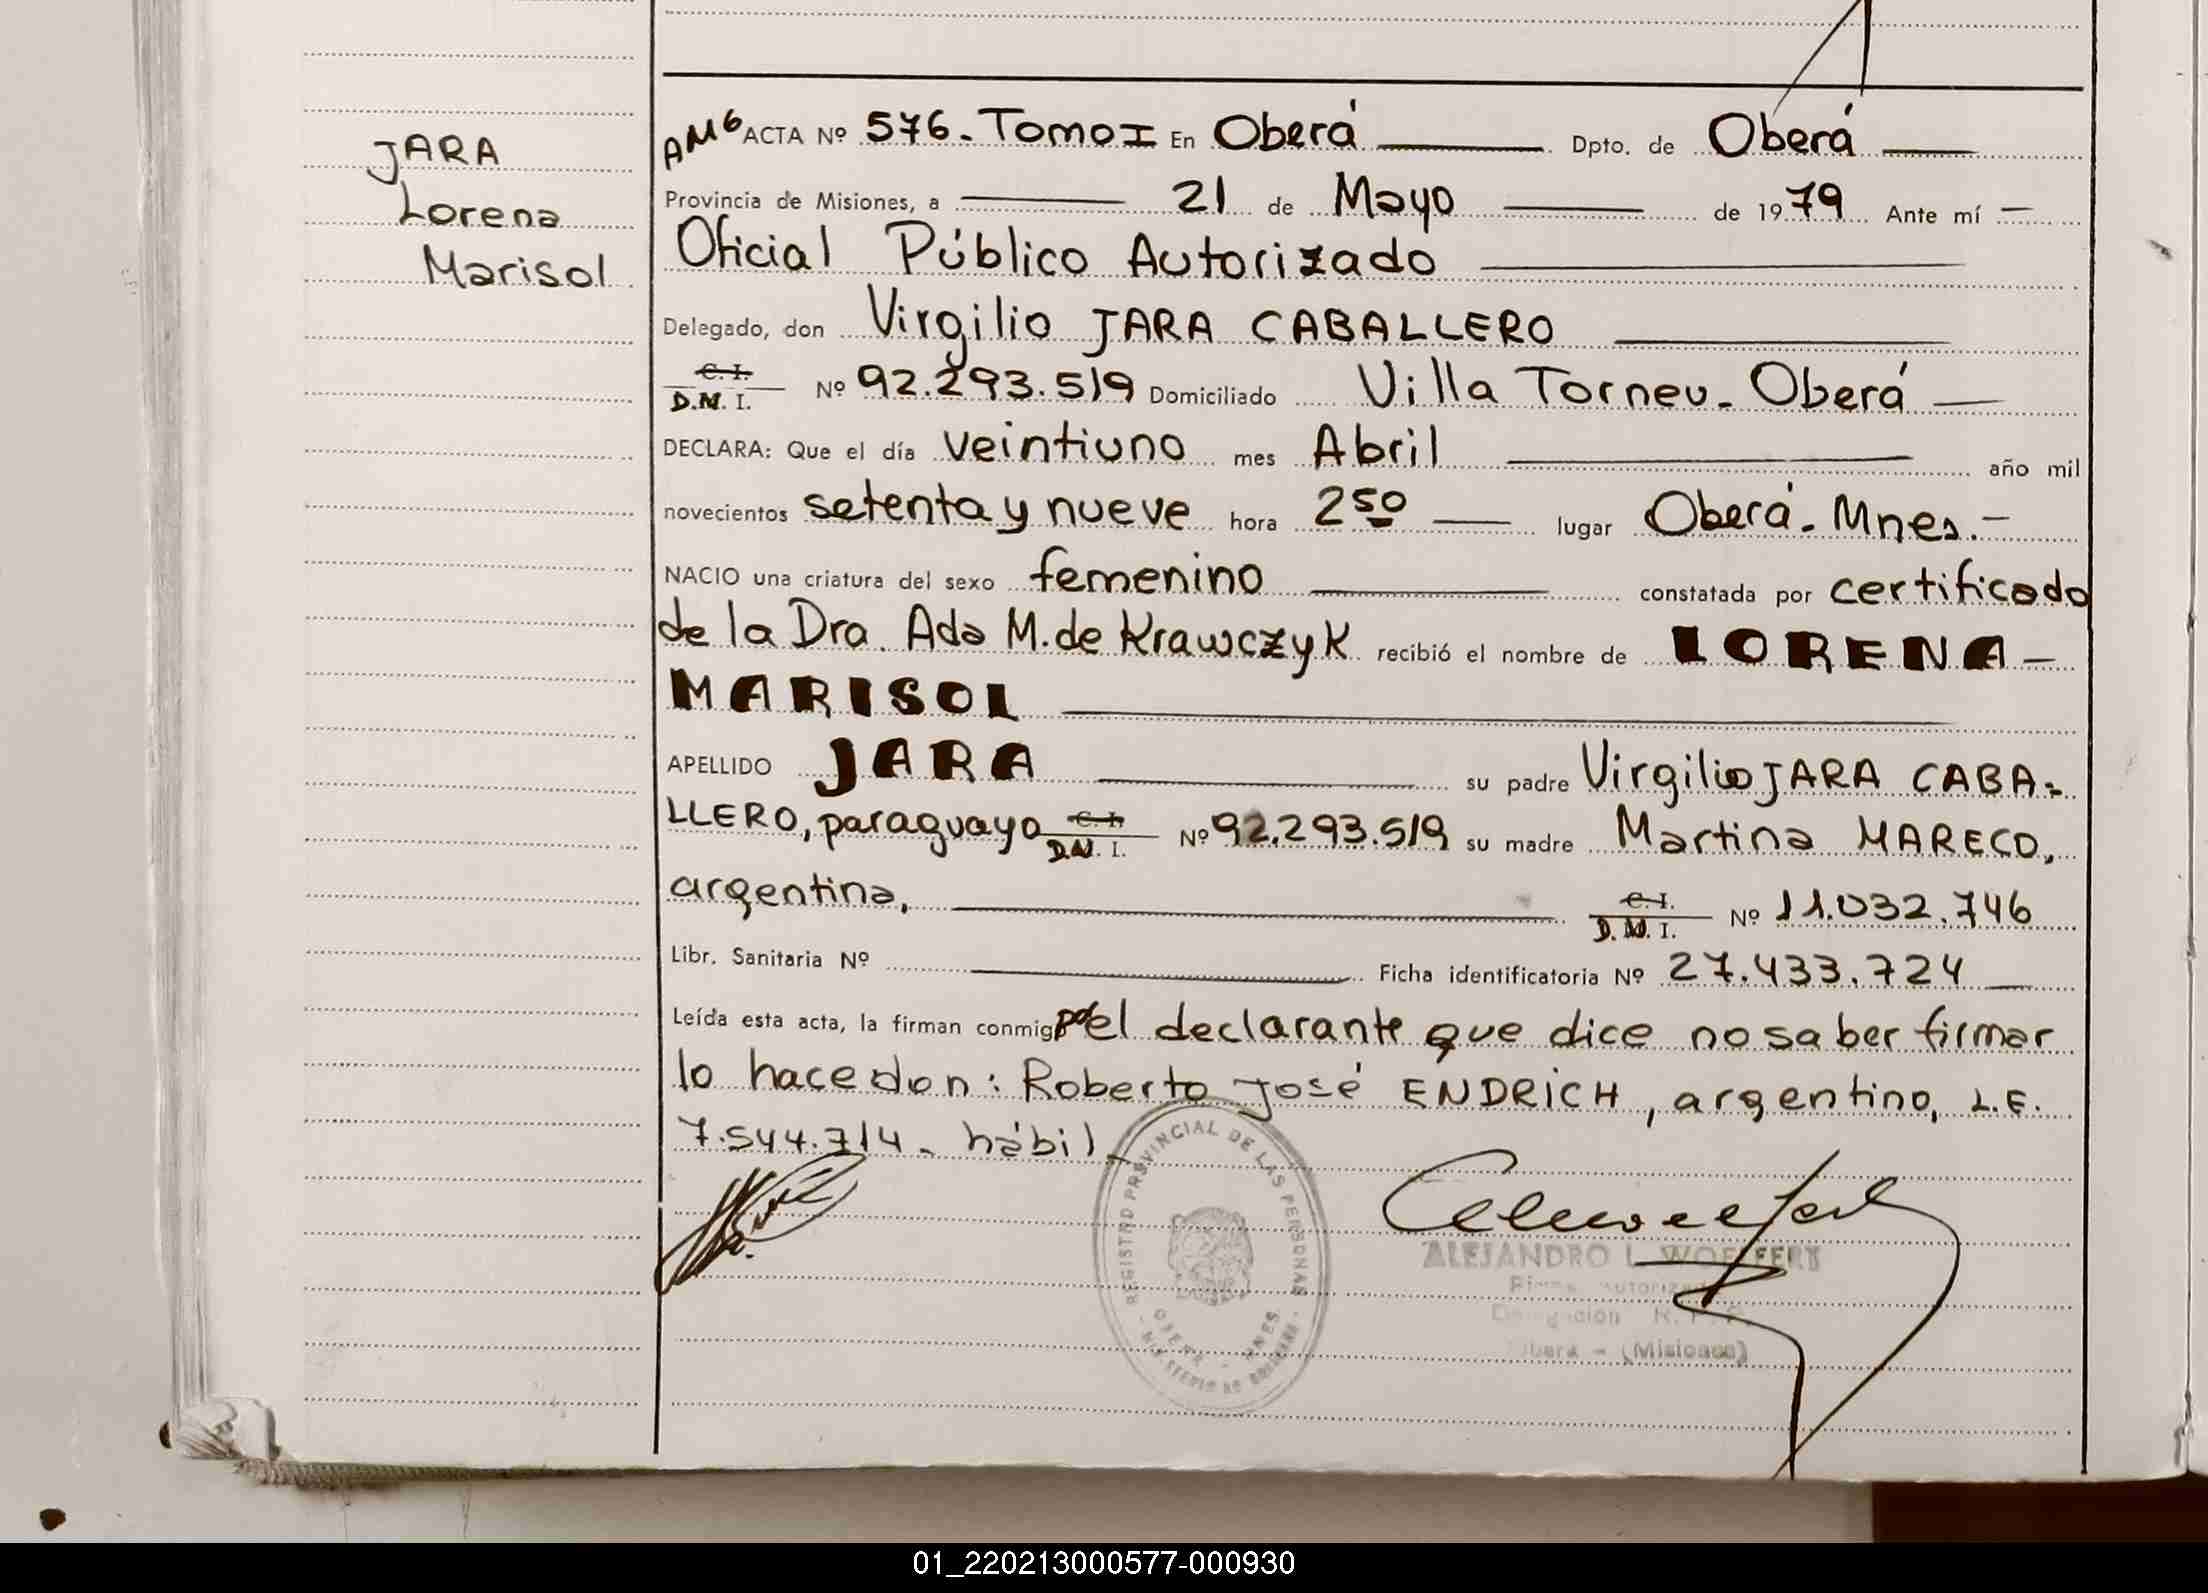 JARA
Lorena
Marisol
AMG ACTA Nº 576. Tomo I En Oberá Dpto. de Oberá
Provincia de Misiones, a 21 de Mayo de 1979 Ante mí
Oficial Público Autorizado
Delegado, don Virgilio JARA CABALLERO
C. I. D.N. I. Nº 92.293.519 Domiciliado Villa Torneu - Oberá
DECLARA: Que el día veintiuno mes Abril año mil
novecientos setenta y nueve hora 2 50 lugar Oberá. Mnes.-
NACIO una criatura del sexo femenino constatada por certificado
de la Dra. Ada M. de Krawczyk recibió el nombre de LORENA -
MARISOL
APELLIDO JARA su padre Virgilio JARA CABA-
LLERO, paraguayo C. I. D.N. I. Nº 92.293.519 su madre Martina MARECO,
argentina, C. I. D. N. I. Nº 11.032.746
Libr. Sanitaria Nº Ficha identificatoria Nº 27.433.724
Leída esta acta, la firman conmigo por el declarante que dice no saber firmar
lo hace don: Roberto José ENDRICH, argentino, L.E.
7.544.714 - hábil
REGISTRO PROVINCIAL DE LAS PERSONAS
OBERA - MNES
ALEJANDRO L. WOELFERT
Firma Autorizada
Delegación R. P. P.
Oberá - (Misiones)
01_220213000577-000930